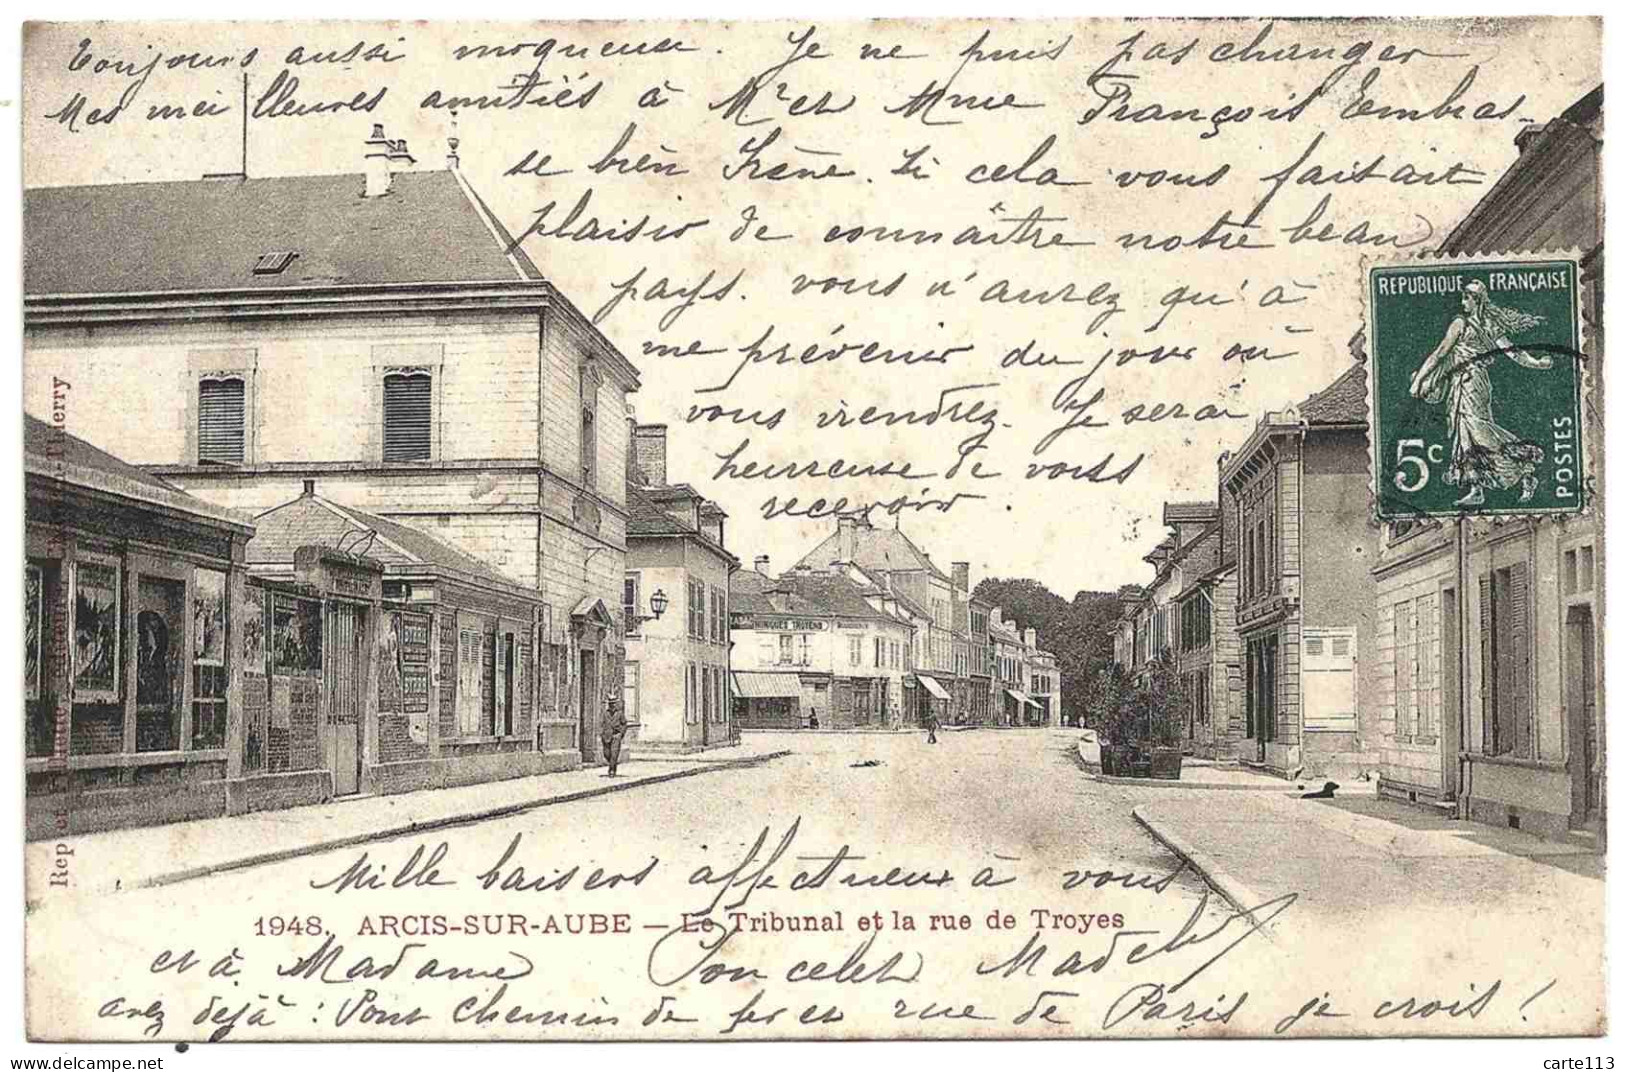 Toujours aussi moqueuse. Je ne puis pas changer
Mes meilleures amitiés à Mr et Mme François Embras-
se bien Irène. Si cela vous faisait
plaisir de connaître notre beau
pays. vous n'aurez qu'à
me prévenir du jour où
vous viendrez. Je serai
heureuse de vous
recevoir.
REPUBLIQUE FRANÇAISE
5c
POSTES
Mille baisers affectueux à vous
1948. ARCIS-SUR-AUBE — Le Tribunal et la rue de Troyes
et à Madame Poncelet Madel
avez déjà : Pont Chemin de fer et rue de Paris je crois !
Rep et
Thierry
carte113